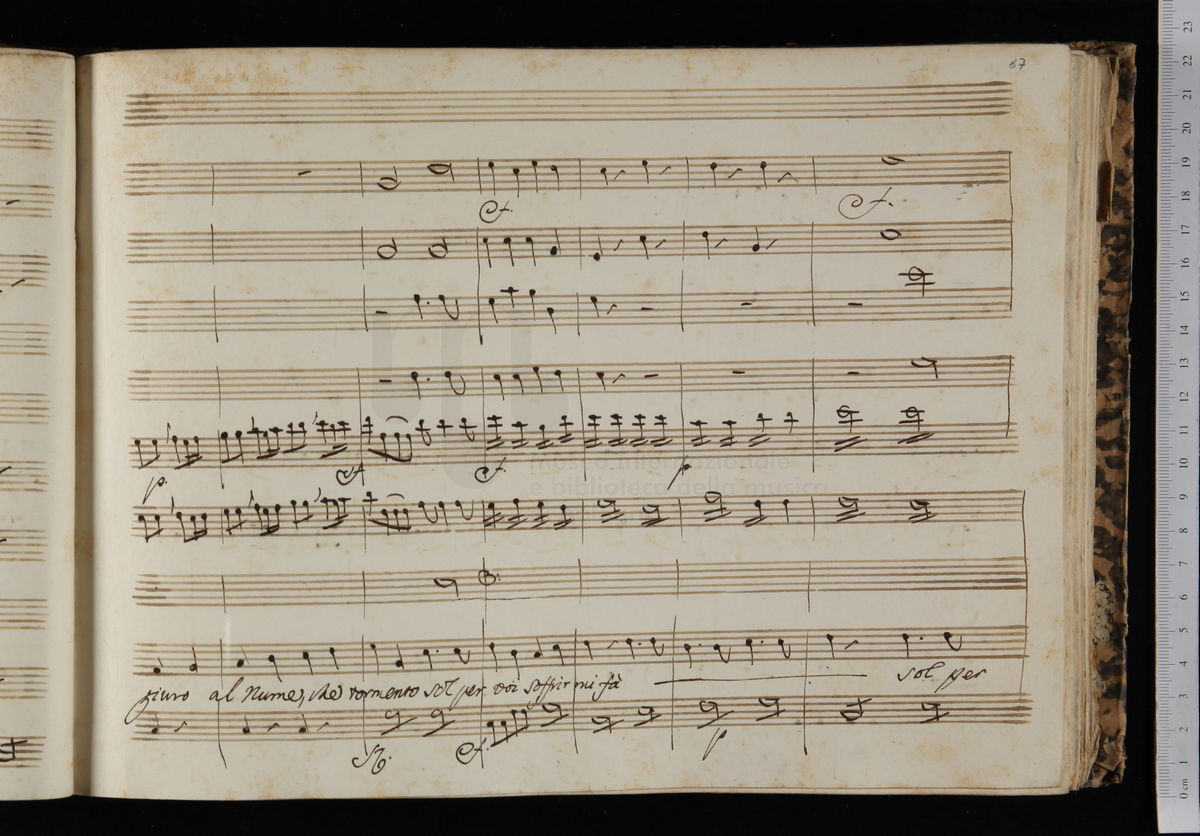 67
f.
f.
museo internazionale
e biblioteca della musica
p.
f
f.
p
sol per
giuro al Nume, che tormento sol per voi soffrir mi fà
f.
p
23
22
21
20
19
18
17
16
15
14
13
12
11
10
9
8
7
6
5
4
3
2
1
0 cm